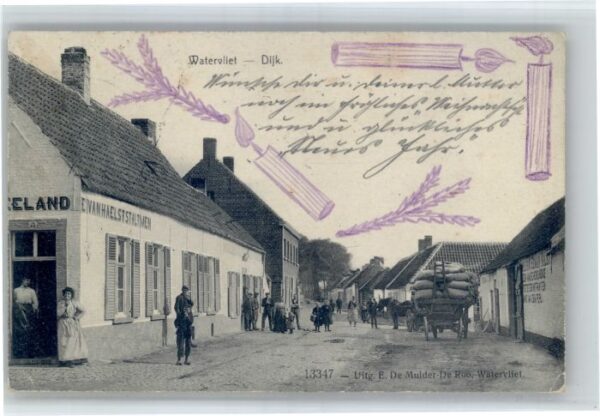 Watervliet — Dijk.
Wünsche dir u. deiner l. Mutter
noch ein fröhliches Weihnachts
und u. glückliches
"Neues Jahr".
EELAND
E VANHAELST STALTMEN
13347 — Uitg. E. De Mulder-De Roo, Watervliet.